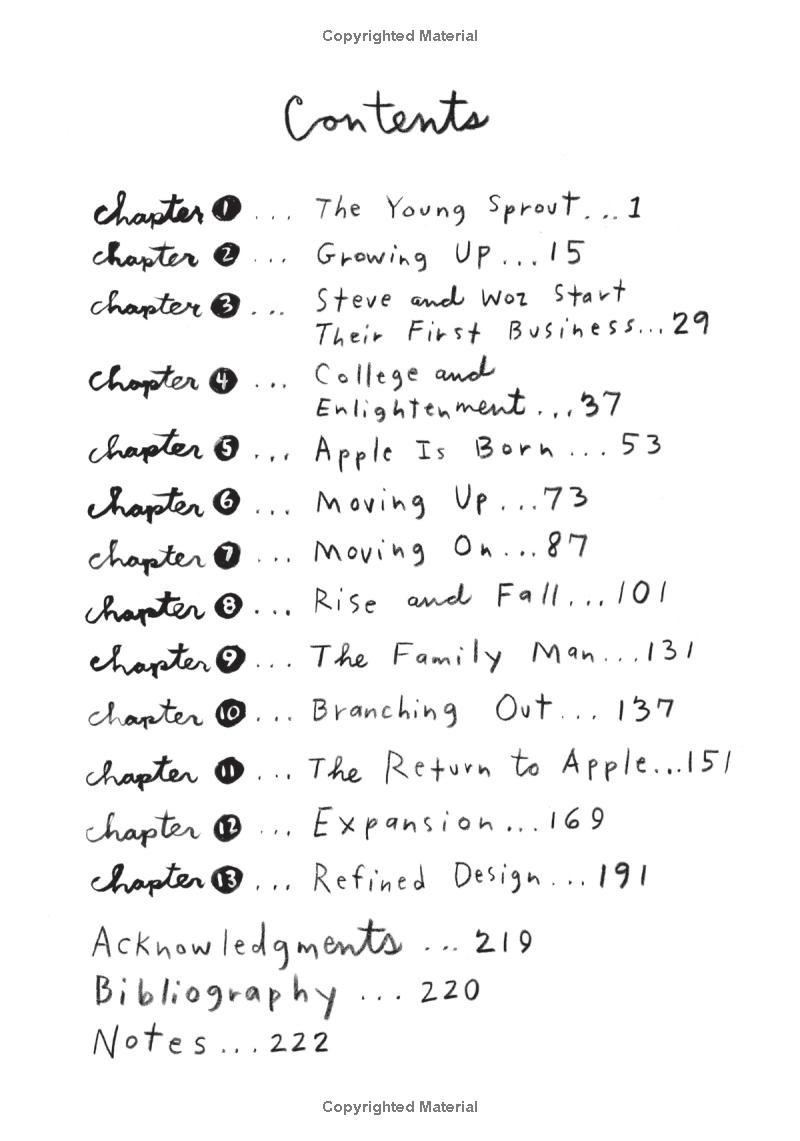 Copyrighted Material
Contents
chapter 1 ... The Young Sprout...1
chapter 2 ... Growing Up...15
chapter 3 ... Steve and Woz Start
Their First Business...29
chapter 4 ... College and
Enlightenment...37
chapter 5 ... Apple Is Born...53
chapter 6 ... Moving Up...73
chapter 7 ... Moving On...87
chapter 8 ... Rise and Fall...101
chapter 9 ... The Family Man...131
chapter 10 ... Branching Out...137
chapter 11 ... The Return to Apple...151
chapter 12 ... Expansion...169
chapter 13 ... Refined Design...191
Acknowledgments ... 219
Bibliography ... 220
Notes...222
Copyrighted Material